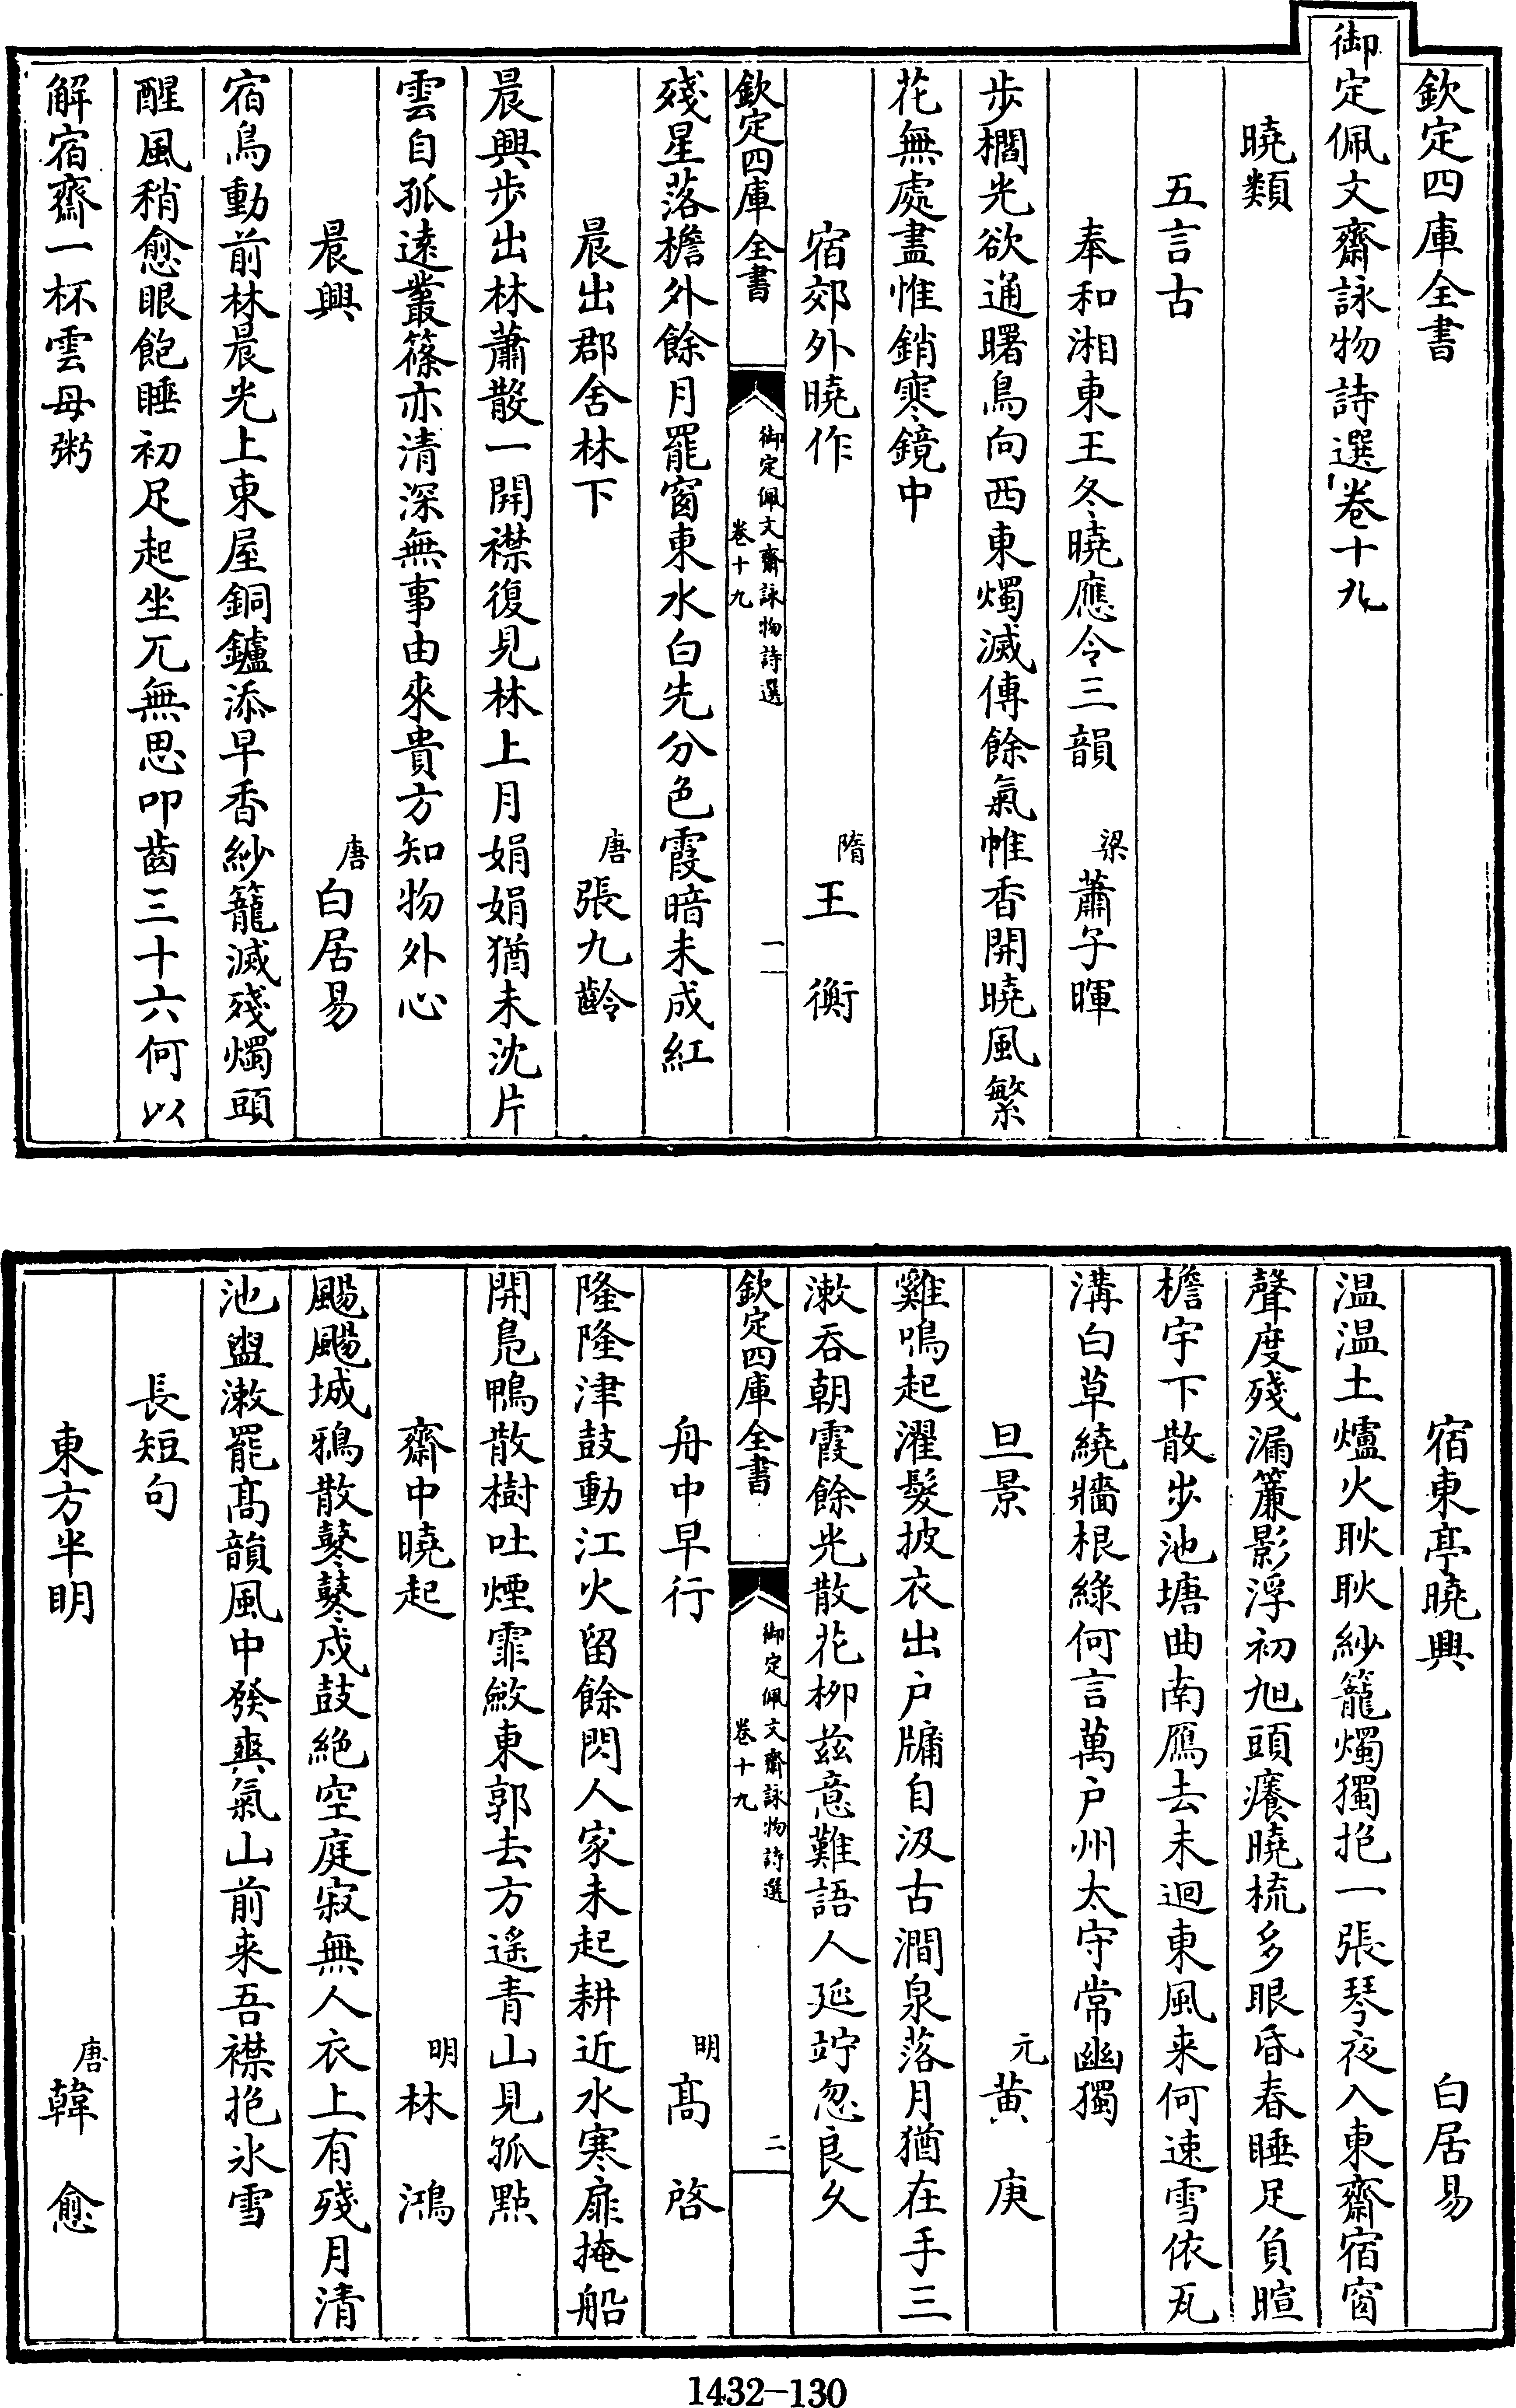 欽定四庫全書
御定佩文齋詠物詩選卷十九
曉類
五言古
奉和湘東王冬曉應令三韻 梁蕭子暉
步櫩光欲通曙鳥向西東燭滅傳餘氣帷香開曉風繁
花無處盡惟銷寒鏡中
宿郊外曉作 隋王衡
欽定四庫全書
御定佩文齋詠物詩選
卷十九
一
殘星落檐外餘月罷窗東水白先分色霞暗未成紅
晨出郡舍林下 唐張九齡
晨興步出林蕭散一開襟復見林上月娟娟猶未沈片
雲自孤遠叢篠亦清深無事由來貴方知物外心
晨興 唐白居易
宿鳥動前林晨光上東屋銅鑪添早香紗籠滅殘燭頭
醒風稍愈眼飽睡初足起坐兀無思叩齒三十六何以
解宿齋一杯雲母粥
宿東亭曉興 白居易
温温土爐火耿耿紗籠燭獨抱一張琴夜入東齋宿窗
聲度殘漏簾影浮初旭頭癢曉梳多眼昏春睡足負暄
檐宇下散步池塘曲南雁去未迴東風来何速雪依瓦
溝白草繞牆根綠何言萬户州太守常幽獨
旦景 元黄庚
雞鳴起濯髮披衣出户牗自汲古澗泉落月猶在手三
漱吞朝霞餘光散花柳兹意難語人延竚忽良久
欽定四庫全書
御定佩文齋詠物詩選
卷十九
二
舟中早行 明高啓
隆隆津鼓動江火留餘閃人家未起耕近水寒扉掩船
開凫鴨散樹吐煙霏斂東郭去方遥青山見孤點
齋中曉起 明林鴻
颺颺城鴉散鼕鼕戍鼓絶空庭寂無人衣上有殘月清
池盥漱罷髙韻風中發爽氣山前来吾襟抱氷雪
長短句
東方半明 唐韓愈
1432-130